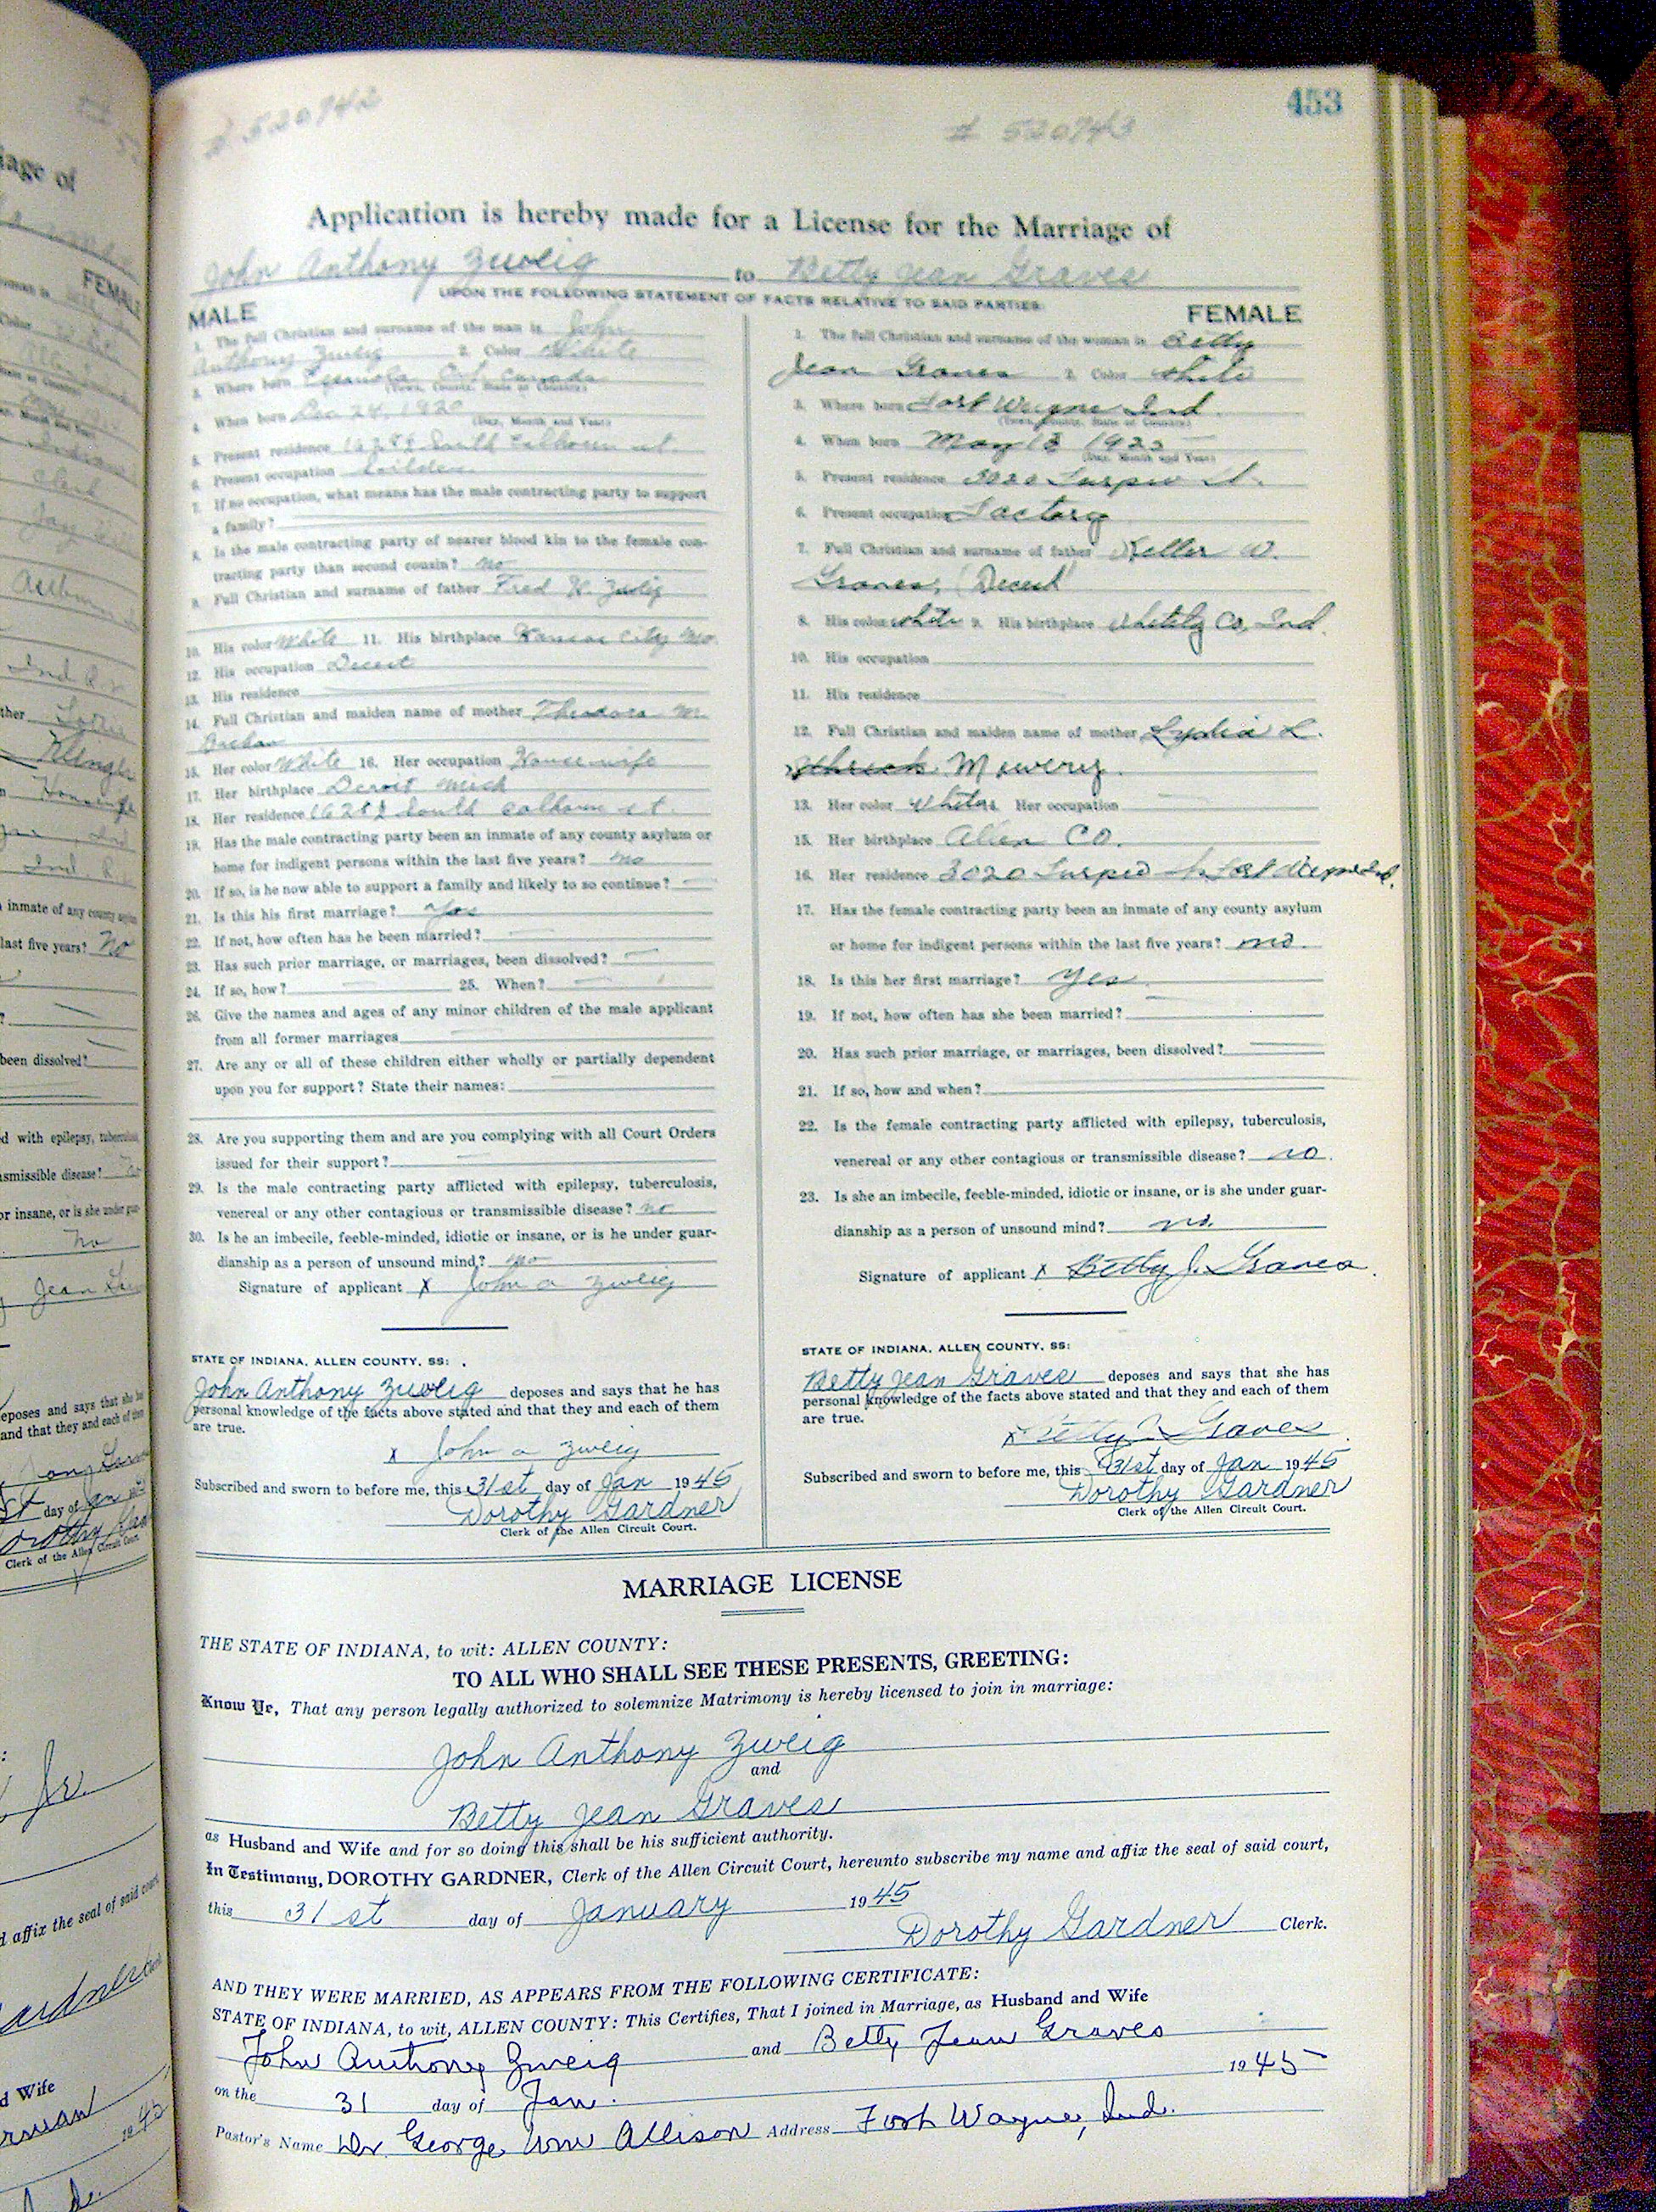 453
# 520743
# 520743
Application is hereby made for a License for the Marriage of
John Anthony Zweig to Betty Jean Graves
UPON THE FOLLOWING STATEMENT OF FACTS RELATIVE TO SAID PARTIES:
MALE
1. The full Christian and surname of the man is John
Anthony Zweig 2. Color White
3. Where born Espanola Ont Canada
(Town, County, State or Country)
4. When born Dec 24, 1920
(Day, Month and Year)
5. Present residence South Calhoun st.
6. Present occupation
7. If no occupation, what means has the male contracting party to support
a family?
8. Is the male contracting party of nearer blood kin to the female con-
tracting party than second cousin? no
9. Full Christian and surname of father Fred H. Zweig
10. His color White 11. His birthplace Kansas City Mo.
12. His occupation Decest
13. His residence
14. Full Christian and maiden name of mother Theodora M.
15. Her color White 16. Her occupation Housewife
17. Her birthplace Detroit Mich
18. Her residence South Calhoun st.
19. Has the male contracting party been an inmate of any county asylum or
home for indigent persons within the last five years? no
20. If so, is he now able to support a family and likely to so continue?
21. Is this his first marriage? Yes
22. If not, how often has he been married?
23. Has such prior marriage, or marriages, been dissolved?
24. If so, how? 25. When?
26. Give the names and ages of any minor children of the male applicant
from all former marriages
27. Are any or all of these children either wholly or partially dependent
upon you for support? State their names:
28. Are you supporting them and are you complying with all Court Orders
issued for their support?
29. Is the male contracting party afflicted with epilepsy, tuberculosis,
venereal or any other contagious or transmissible disease? no
30. Is he an imbecile, feeble-minded, idiotic or insane, or is he under guar-
dianship as a person of unsound mind? no
Signature of applicant x John a Zweig
STATE OF INDIANA, ALLEN COUNTY, SS:
John Anthony Zweig deposes and says that he has
personal knowledge of the facts above stated and that they and each of them
are true.
x John a Zweig
Subscribed and sworn to before me, this 31st day of Jan 1945
Dorothy Gardner
Clerk of the Allen Circuit Court.
FEMALE
1. The full Christian and surname of the woman is Betty
Jean Graves 2. Color white
3. Where born Fort Wayne Ind.
(Town, County, State or Country)
4. When born May 18 1923
(Day, Month and Year)
5. Present residence 3020 st.
6. Present occupation Factory
7. Full Christian and surname of father Keller W.
Graves, (Decest)
8. His color white 9. His birthplace Whitely Co, Ind.
10. His occupation
11. His residence
12. Full Christian and maiden name of mother Lydia L.
Mowery.
13. Her color white 14. Her occupation
15. Her birthplace Allen Co.
16. Her residence 3020 st. Fort Wayne Ind.
17. Has the female contracting party been an inmate of any county asylum
or home for indigent persons within the last five years? no.
18. Is this her first marriage? Yes
19. If not, how often has she been married?
20. Has such prior marriage, or marriages, been dissolved?
21. If so, how and when?
22. Is the female contracting party afflicted with epilepsy, tuberculosis,
venereal or any other contagious or transmissible disease? no.
23. Is she an imbecile, feeble-minded, idiotic or insane, or is she under guar-
dianship as a person of unsound mind? no.
Signature of applicant x Betty J. Graves
STATE OF INDIANA, ALLEN COUNTY, SS:
Betty Jean Graves deposes and says that she has
personal knowledge of the facts above stated and that they and each of them
are true.
x Betty J. Graves
Subscribed and sworn to before me, this 31st day of Jan 1945
Dorothy Gardner
Clerk of the Allen Circuit Court.
MARRIAGE LICENSE
THE STATE OF INDIANA, to wit: ALLEN COUNTY:
TO ALL WHO SHALL SEE THESE PRESENTS, GREETING:
Know Ye, That any person legally authorized to solemnize Matrimony is hereby licensed to join in marriage:
John Anthony Zweig
and
Betty Jean Graves
as Husband and Wife and for so doing this shall be his sufficient authority.
In Testimony, DOROTHY GARDNER, Clerk of the Allen Circuit Court, hereunto subscribe my name and affix the seal of said court,
this 31st day of January 1945
Dorothy Gardner Clerk.
AND THEY WERE MARRIED, AS APPEARS FROM THE FOLLOWING CERTIFICATE:
STATE OF INDIANA, to wit, ALLEN COUNTY: This Certifies, That I joined in Marriage, as Husband and Wife
John Anthony Zweig and Betty Jean Graves
on the 31 day of Jan. 1945
Pastor's Name Dr George Wm Allison Address Fort Wayne, Ind.